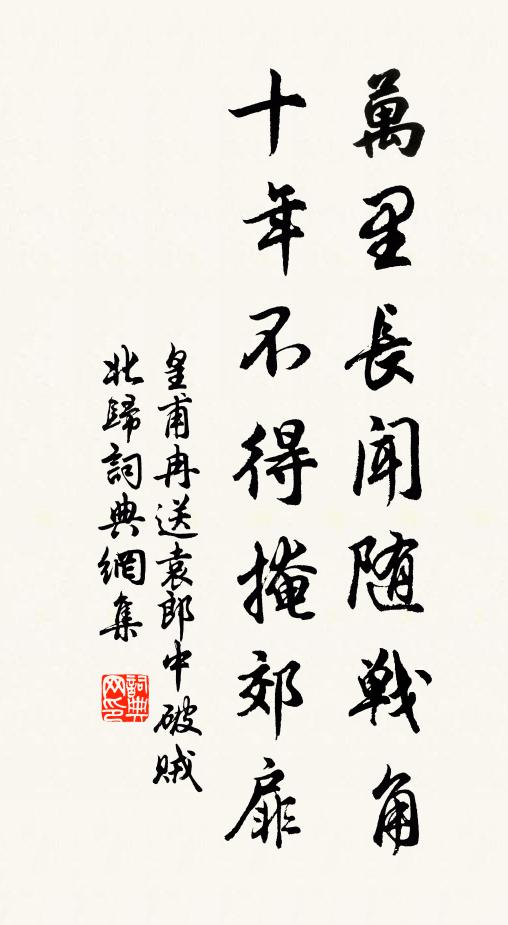 萬里長聞随戦角
十年不得掩郊扉
皇甫冉送袁郎中破賊
北歸詞典網集
詞典网印